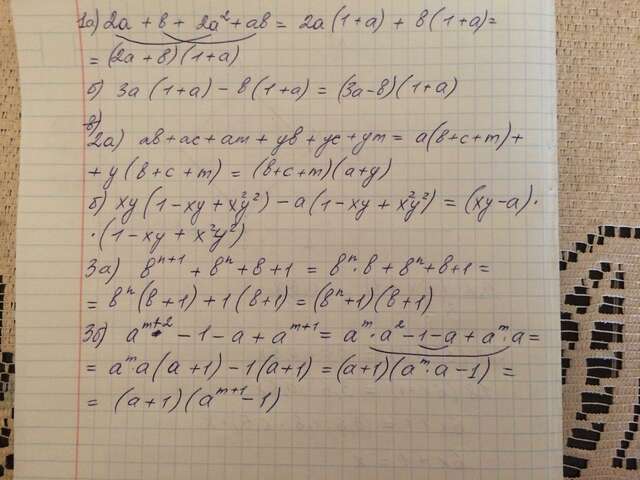 1а) 2a + b + 2a² + ab = 2a(1+a) + b(1+a) =
= (2a+b)(1+a)
б) 3a(1+a) - b(1+a) = (3a-b)(1+a)
в)
2а) ab+ac+am+yb+yc+ym = a(b+c+m) +
+ y(b+c+m) = (b+c+m)(a+y)
б) xy(1-xy+x²y²) - a(1-xy+x²y²) = (xy-a)·
·(1-xy+x²y²)
3а) bⁿ⁺¹ + bⁿ + b + 1 = bⁿ·b + bⁿ + b + 1 =
= bⁿ(b+1) + 1(b+1) = (bⁿ+1)(b+1)
3б) a^{m+2} - 1 - a + a^{m+1} = a^m·a² - 1 - a + a^m·a =
= a^m·a(a+1) - 1(a+1) = (a+1)(a^m·a - 1) =
= (a+1)(a^{m+1} - 1)